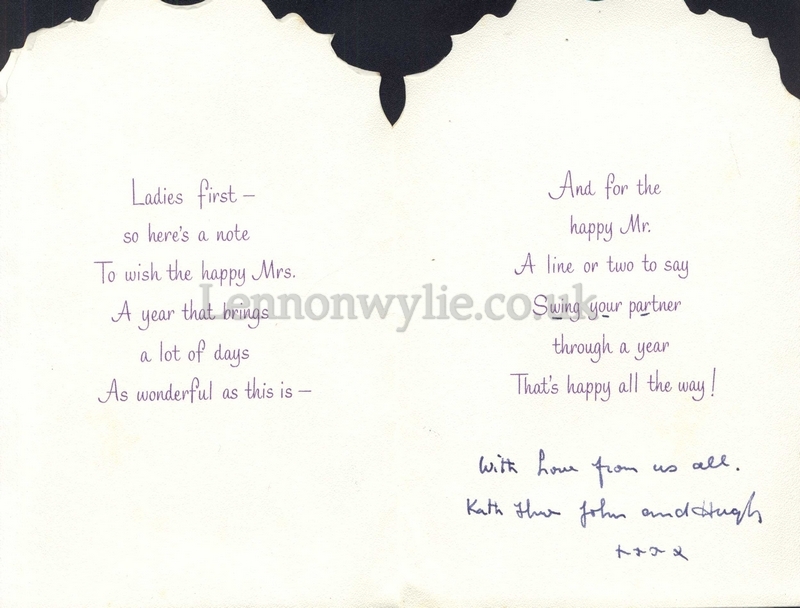 Ladies first —
so here's a note
To wish the happy Mrs.
A year that brings
a lot of days
As wonderful as this is —
And for the
happy Mr.
A line or two to say
Swing your partner
through a year
That's happy all the way!
Lennonwylie.co.uk
With love from us all.
Kath John and Hugh
xxxx